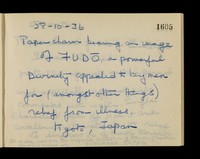 1605
28-10-36
Paper charm bearing an image
of FUDŌ, a powerful
Divinity appealed to by men
for (amongst other things)
relief from illness.
Kyoto, Japan